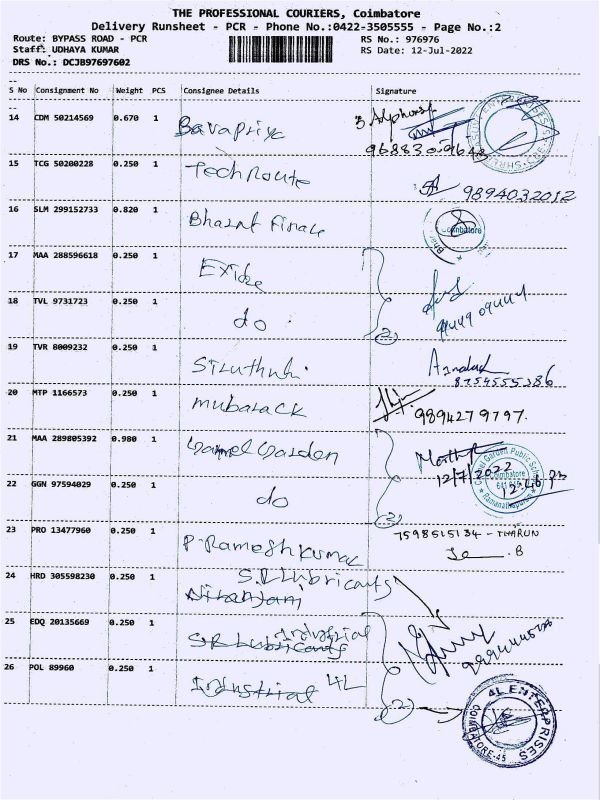 THE PROFESSIONAL COURIERS, Coimbatore
Delivery Runsheet - PCR - Phone No.:0422-3505555 - Page No.:2
Route: BYPASS ROAD - PCR RS No.: 976976
Staff: UDHAYA KUMAR RS Date: 12-Jul-2022
DRS No.: DCJB97697602
S No Consignment No Weight PCS Consignee Details Signature
14 CDM 50214569 0.670 1 Bavapriya
15 TCG 50200228 0.250 1 Tech Route 9894032012
16 SLM 299152733 0.820 1 Bharat Finance Coimbatore
17 MAA 288596618 0.250 1 Exide
18 TVL 9731723 0.250 1 do 2
19 TVR 8009232 0.250 1 Siruthuli 8754555386
20 MTP 1166573 0.250 1 mubarack 9894279797.
21 MAA 289805392 0.980 1 Carmel Garden 12/7/2022
Carmel Garden Public School Coimbatore Ramanathapuram
22 GGN 97594029 0.250 1 do 2
23 PRO 13477960 0.250 1 P. Ramesh Kumar 7598515134 - THARUN
24 HRD 305598230 0.250 1 S.R Lubricants
Niranjani
25 EDQ 20135669 0.250 1 Industrial
S.R Lubricants
26 POL 89960 0.250 1 Industrial 4L 2
4L ENTERPRISES COIMBATORE-45